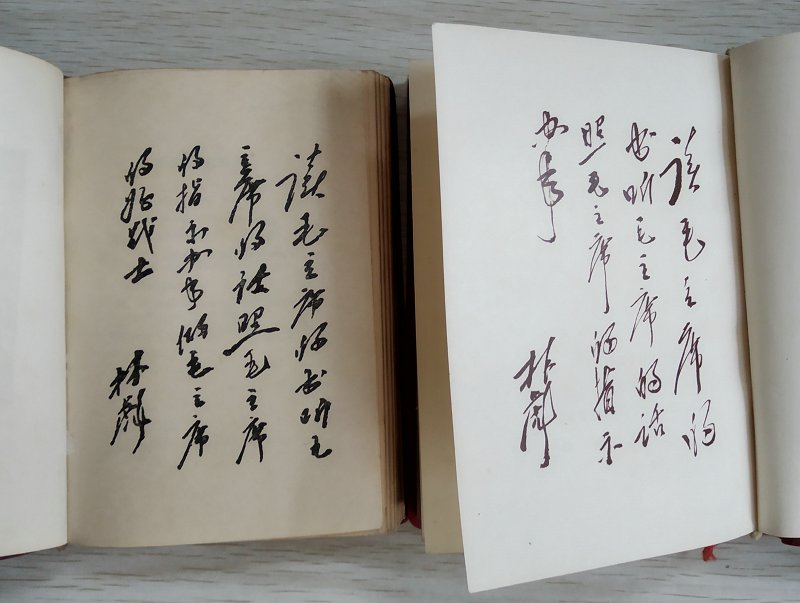 读毛主席的书听毛
主席的话照毛主席
的指示办事做毛主席
的好战士
林彪
读毛主席的
书听毛主席的话
照毛主席的指示
办事
林彪